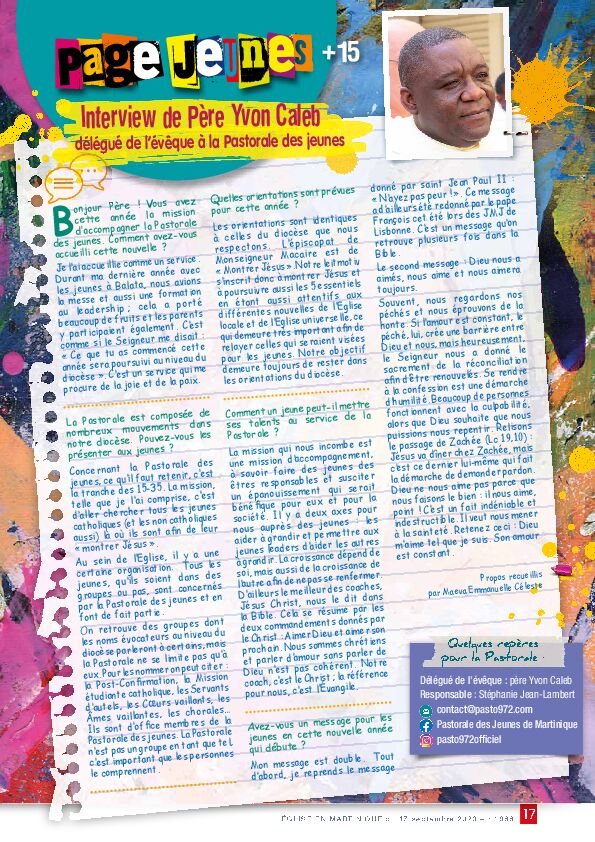 Page Jeunes +15
Interview de Père Yvon Caleb
délégué de l'évêque à la Pastorale des jeunes
Bonjour Père ! Vous avez
cette année la mission
d'accompagner la Pastorale
des jeunes. Comment avez-vous
accueilli cette nouvelle ?
Je l'ai accueillie comme un service.
Durant ma dernière année avec
les jeunes à Balata, nous avions
la messe et aussi une formation
au leadership ; cela a porté
beaucoup de fruits et les parents
y participaient également. C'est
comme si le Seigneur me disait :
« Ce que tu as commencé cette
année sera poursuivi au niveau du
diocèse ». C'est un service qui me
procure de la joie et de la paix.
La Pastorale est composée de
nombreux mouvements dans
notre diocèse. Pouvez-vous les
présenter aux jeunes ?
Concernant la Pastorale des
jeunes, ce qu'il faut retenir, c'est
la tranche des 15-35. La mission,
telle que je l'ai comprise, c'est
d'aller chercher tous les jeunes
catholiques (et les non catholiques
aussi) là où ils sont afin de leur
« montrer Jésus ».
Au sein de l'Église, il y a une
certaine organisation. Tous les
jeunes, qu'ils soient dans des
groupes ou pas, sont concernés
par la Pastorale des jeunes et en
font de fait partie.
On retrouve des groupes dont
les noms évocateurs au niveau du
diocèse parleront à certains, mais
la Pastorale ne se limite pas qu'à
eux. Pour les nommer on peut citer :
la Post-Confirmation, la Mission
étudiante catholique, les Servants
d'autels, les Cœurs vaillants, les
Âmes vaillantes, les chorales...
Ils sont d'office membres de la
Pastorale des jeunes. La Pastorale
n'est pas un groupe en tant que tel,
c'est important que les personnes
le comprennent.
Quelles orientations sont prévues
pour cette année ?
Les orientations sont identiques
à celles du diocèse que nous
respectons. L'épiscopat de
Monseigneur Macaire est de
« Montrer Jésus ». Notre leitmotiv
s'inscrit donc à montrer Jésus et
à poursuivre aussi les 5 essentiels
en étant aussi attentifs aux
différentes nouvelles de l'Église
locale et de l'Église universelle, ce
qui demeure très important afin de
relayer celles qui seraient visées
pour les jeunes. Notre objectif
demeure toujours de rester dans
les orientations du diocèse.
Comment un jeune peut-il mettre
ses talents au service de la
Pastorale ?
La mission qui nous incombe est
une mission d'accompagnement,
à savoir faire des jeunes des
êtres responsables et susciter
un épanouissement qui serait
bénéfique pour eux et pour la
société. Il y a deux axes pour
nous auprès des jeunes : les
aider à grandir et permettre aux
jeunes leaders d'aider les autres
à grandir. La croissance dépend de
soi, mais aussi de la croissance de
l'autre afin de ne pas se renfermer.
D'ailleurs le meilleur des coaches,
Jésus Christ, nous le dit dans
la Bible. Cela se résume par les
deux commandements donnés par
le Christ : Aimer Dieu et aimer son
prochain. Nous sommes chrétiens
et parler d'amour sans parler de
Dieu n'est pas cohérent. Notre
coach, c'est le Christ ; la référence
pour nous, c'est l'Évangile.
Avez-vous un message pour les
jeunes en cette nouvelle année
qui débute ?
Mon message est double. Tout
d'abord, je reprends le message
donné par saint Jean Paul II :
« N'ayez pas peur ! ». Ce message
a d'ailleurs été redonné par le pape
François cet été lors des JMJ de
Lisbonne. C'est un message qu'on
retrouve plusieurs fois dans la
Bible.
Le second message : Dieu nous a
aimés, nous aime et nous aimera
toujours.
Souvent, nous regardons nos
péchés et nous éprouvons de la
honte. Si l'amour est constant, le
péché, lui, crée une barrière entre
Dieu et nous, mais heureusement,
le Seigneur nous a donné le
sacrement de la réconciliation
afin d'être renouvelés. Se rendre
à la confession est une démarche
d'humilité. Beaucoup de personnes
fonctionnent avec la culpabilité,
alors que Dieu souhaite que nous
puissions nous repentir. Relisons
le passage de Zachée (Lc 19,10) :
Jésus va dîner chez Zachée, mais
c'est ce dernier lui-même qui fait
la démarche de demander pardon.
Dieu ne nous aime pas parce que
nous faisons le bien : il nous aime,
point ! C'est un fait indéniable et
indestructible. Il veut nous mener
à la sainteté. Retenez ceci : Dieu
m'aime tel que je suis. Son amour
est constant.
Propos recueillis
par Maeva Emmanuelle Céleste
Quelques repères
pour la Pastorale :
Délégué de l'évêque : père Yvon Caleb
Responsable : Stéphanie Jean-Lambert
contact@pasto972.com
Pastorale des Jeunes de Martinique
pasto972officiel
ÉGLISE EN MARTINIQUE 17 septembre 2023 17